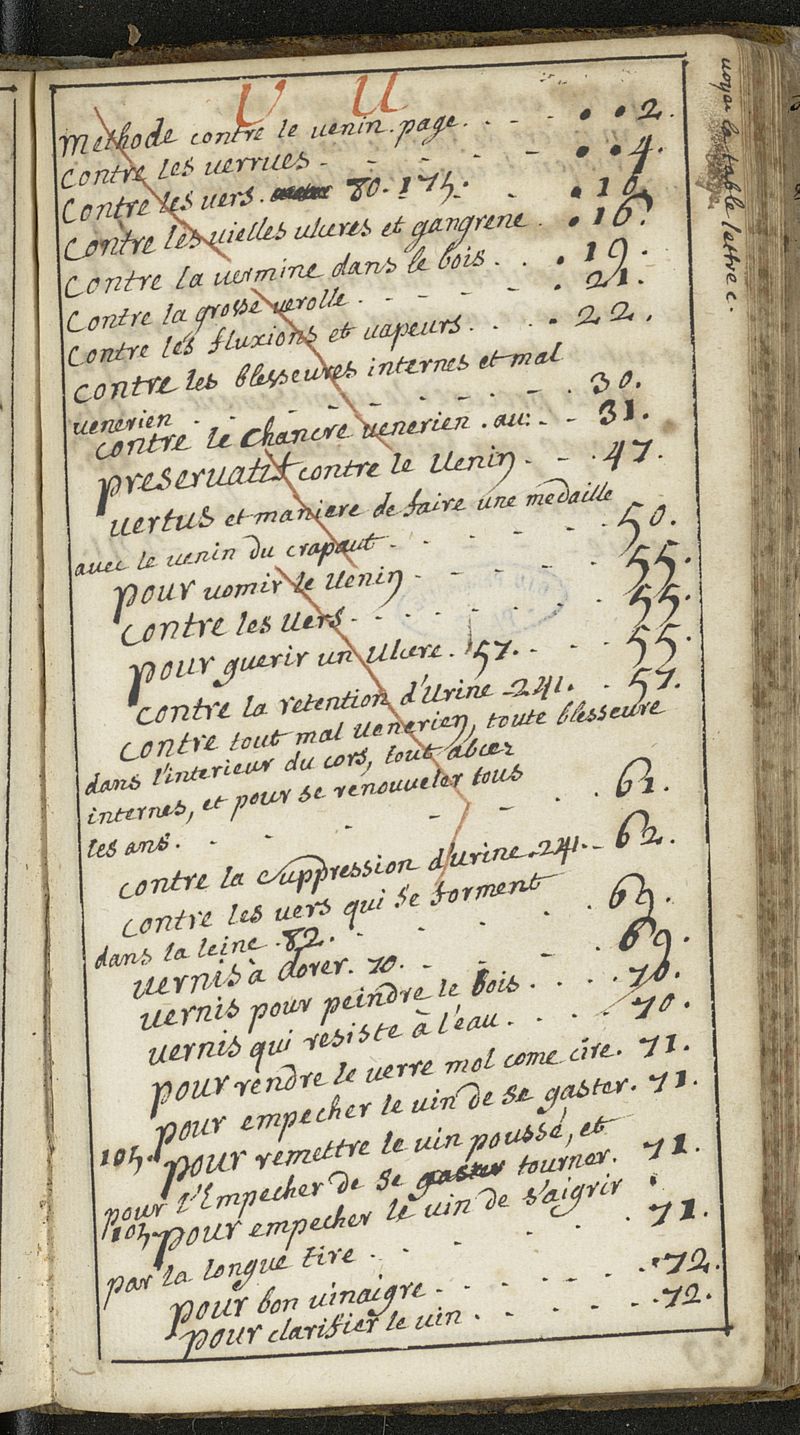 U U
Methode contre le venin. page. . - - . . 2.
Contre les verrues - - - - - . . 4.
Contre les vers. 80. 175. . 16.
Contre les vielles ulceres et gangrene . . 16.
Contre la vermine dans le bois . . . 19.
Contre la grosse verolle . - - - - . 21.
Contre les fluxions et vapeurs. . . . 22.
contre les blesseures internes et mal
venerien - - - - - - - . 30.
contre le chancre venerien . au: - - 31.
preservatif contre le Venin - - . 47.
vertus et maniere de faire une medaille
avec le venin du crapaut - - - - - . 50.
pour vomir le Venin - - - - - 55.
contre les Vers - - - - - . 55.
pour guerir un Ulcere . 57. . - . 55.
contre la retention d'Urine - 241. . 57.
contre tout mal Venerien, toute blesseure
dans l'interieur du cors, tout abcez
internes, et pour se renouveler tous
les ans. - - - - - . . 61.
contre la Suppression d'Urine . 241. - 62.
contre les vers qui se forment
dans la leine . 82. - - - - . 69.
vernis à dorer. 70. - - - . 69.
vernis pour peindre le bois . . . . 70.
vernis qui resiste à l'eau . . . . 70.
pour rendre le verre mol come cire. 71.
pour empecher le vin de se gaster. 71.
105. pour remettre le vin poussé, et
pour l'Empecher de se gaster tourner. 71.
105 pour empecher le vin de s'aigrir
par la longue tire . - - - - . 71.
pour bon vinaigre . - - - - . 72.
pour clarifier le vin . - - - - . 72.
voyes la table lettre c.